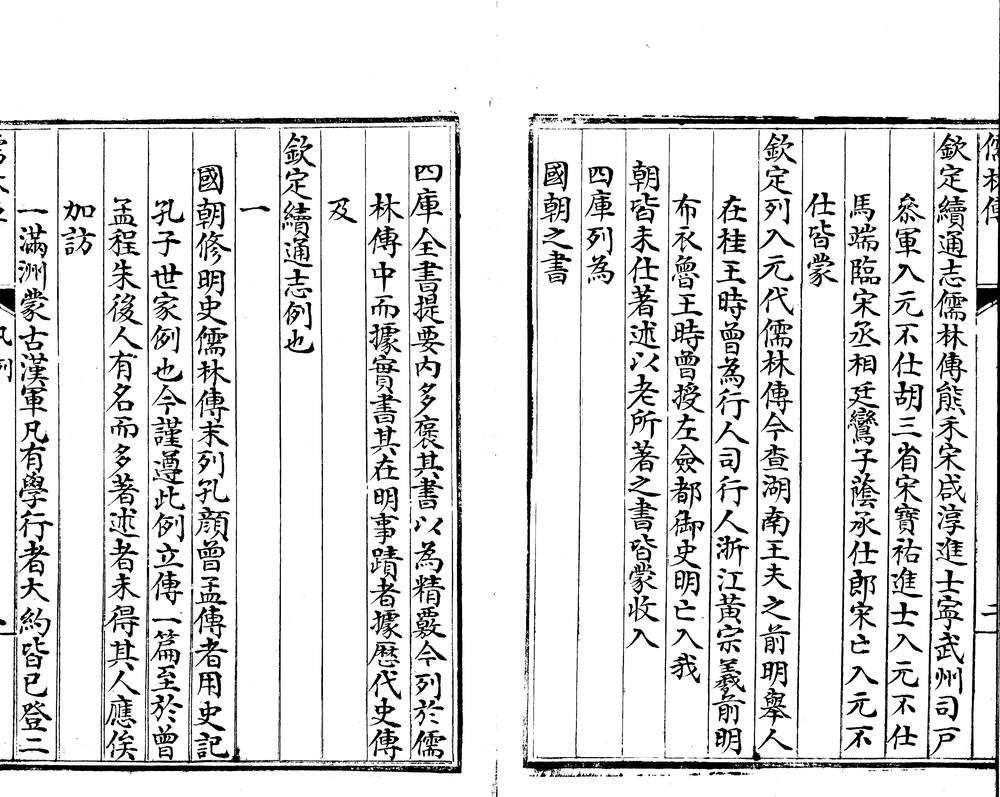 儒林傳
二
欽定續通志儒林傳熊禾宋咸淳進士寧武州司戸
叅軍入元不仕胡三省宋寶祐進士入元不仕
馬端臨宋丞相廷鸞子蔭承仕郎宋亡入元不
仕皆蒙
欽定列入元代儒林傳今查湖南王夫之前明舉人
在桂王時曾為行人司行人浙江黃宗羲前明
布衣魯王時曾授左僉都御史明亡入我
朝皆未仕著述以老所著之書皆蒙收入
四庫列為
國朝之書
四庫全書提要內多褒其書以為精覈今列於儒
林傳中而據實書其在明事蹟者據歷代史傳
及
欽定續通志例也
一
國朝修明史儒林傳末列孔顏曾孟傳者用史記
孔子世家例也今謹遵此例立傳一篇至於曾
孟程朱後人有名而多著述者未得其人應俟
加訪
一滿洲蒙古漢軍凡有學行者大約皆已登二
凡例